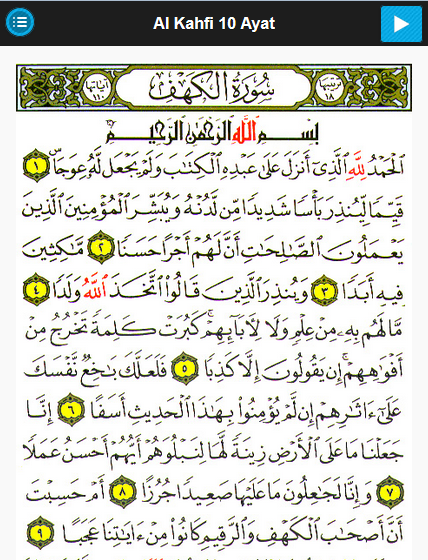 Al Kahfi 10 Ayat
سُورَةُ الْكَهْفِ
بِسْمِ اللَّهِ الرَّحْمَٰنِ الرَّحِيمِ
الْحَمْدُ لِلَّهِ الَّذِىٓ أَنزَلَ عَلَىٰ عَبْدِهِ الْكِتَٰبَ وَلَمْ يَجْعَل لَّهُۥ عِوَجَاۜ ١
قَيِّمًا لِّيُنذِرَ بَأْسًا شَدِيدًا مِّن لَّدُنْهُ وَيُبَشِّرَ الْمُؤْمِنِينَ الَّذِينَ
يَعْمَلُونَ الصَّٰلِحَٰتِ أَنَّ لَهُمْ أَجْرًا حَسَنًا ٢ مَّٰكِثِينَ
فِيهِ أَبَدًا ٣ وَيُنذِرَ الَّذِينَ قَالُوا۟ اتَّخَذَ اللَّهُ وَلَدًا ٤
مَّا لَهُم بِهِۦ مِنْ عِلْمٍ وَلَا لِءَابَآئِهِمْ ۚ كَبُرَتْ كَلِمَةً تَخْرُجُ مِنْ
أَفْوَٰهِهِمْ ۚ إِن يَقُولُونَ إِلَّا كَذِبًا ٥ فَلَعَلَّكَ بَٰخِعٌ نَّفْسَكَ
عَلَىٰٓ ءَاثَٰرِهِمْ إِن لَّمْ يُؤْمِنُوا۟ بِهَٰذَا الْحَدِيثِ أَسَفًا ٦ إِنَّا
جَعَلْنَا مَا عَلَى الْأَرْضِ زِينَةً لَّهَا لِنَبْلُوَهُمْ أَيُّهُمْ أَحْسَنُ عَمَلًا
٧ وَإِنَّا لَجَٰعِلُونَ مَا عَلَيْهَا صَعِيدًا جُرُزًا ٨ أَمْ حَسِبْتَ
أَنَّ أَصْحَٰبَ الْكَهْفِ وَالرَّقِيمِ كَانُوا۟ مِنْ ءَايَٰتِنَا عَجَبًا ٩